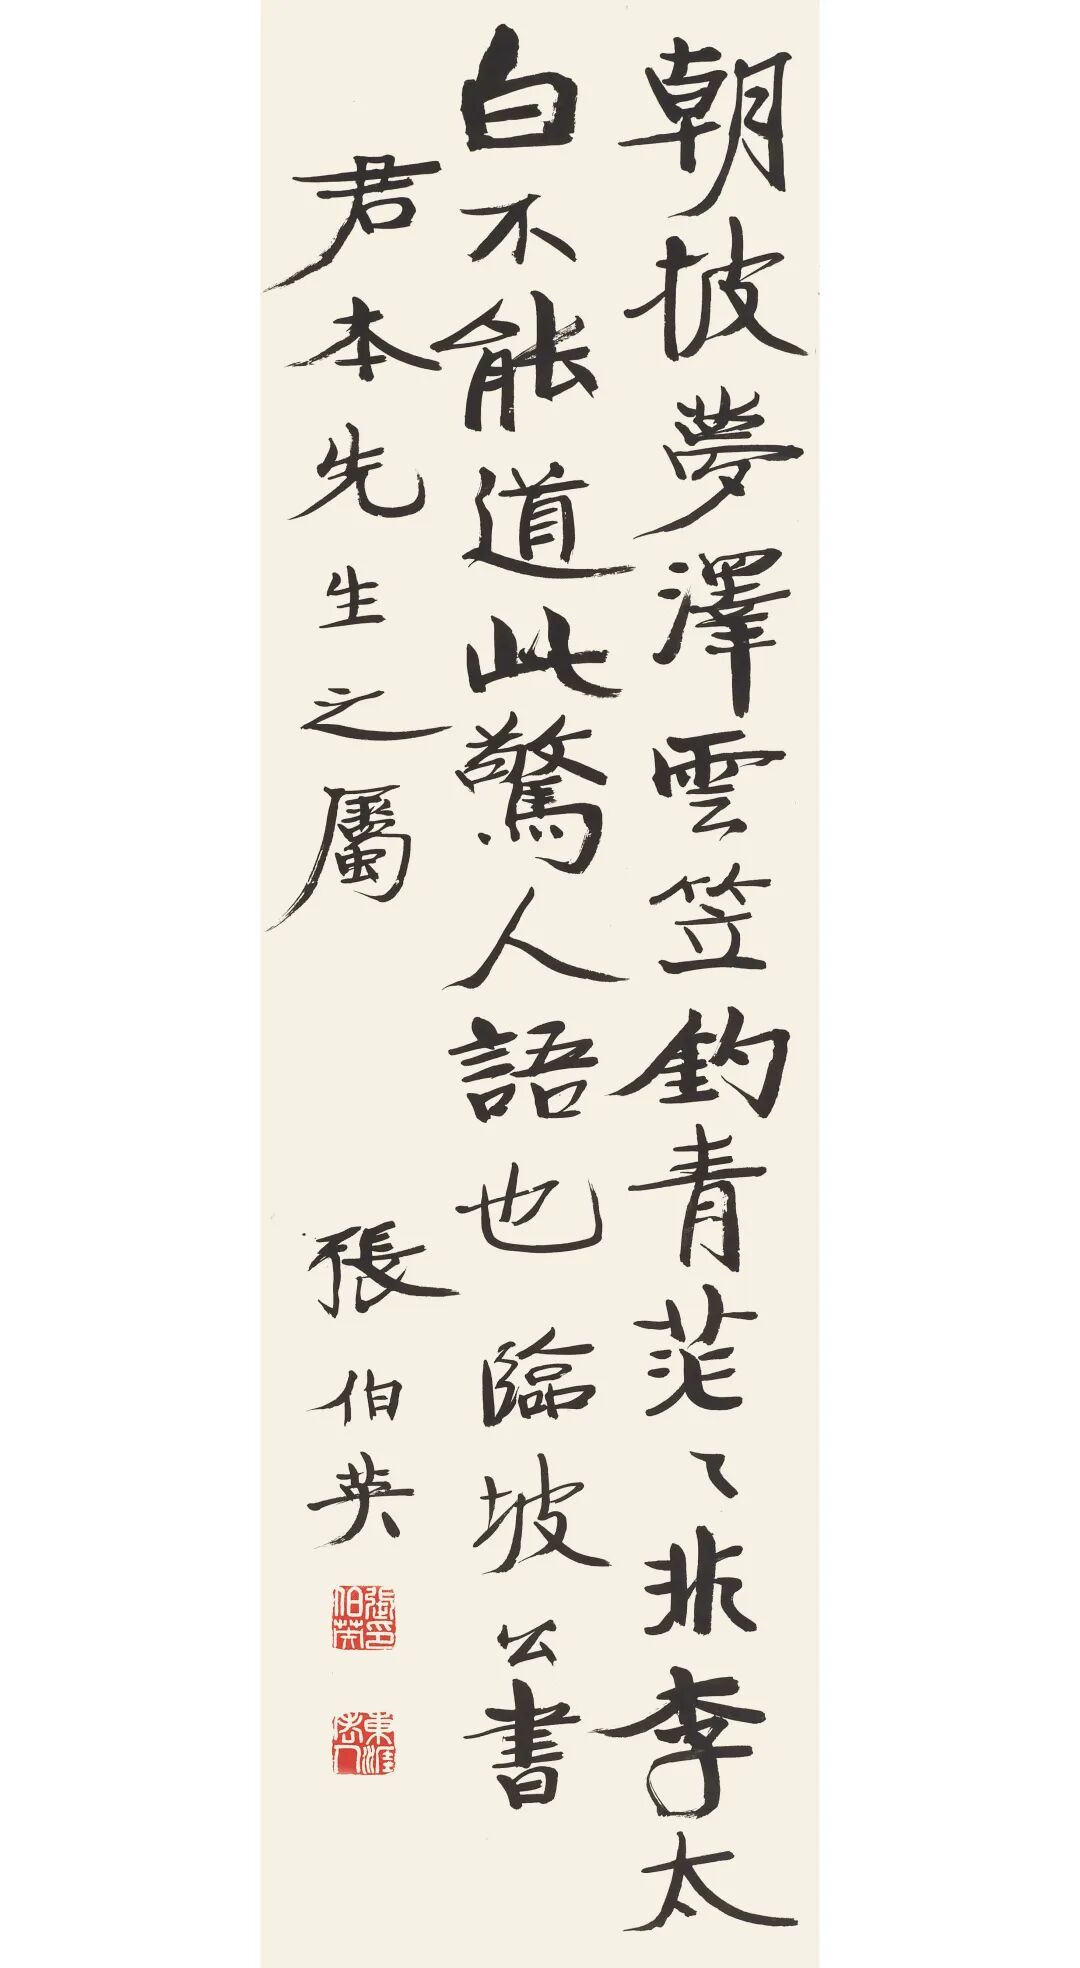 朝披夢澤雲笠釣青茫〻非李太
白不能道此驚人語也 臨坡公書
君本先生之屬
張伯英
張印伯英
東涯老人